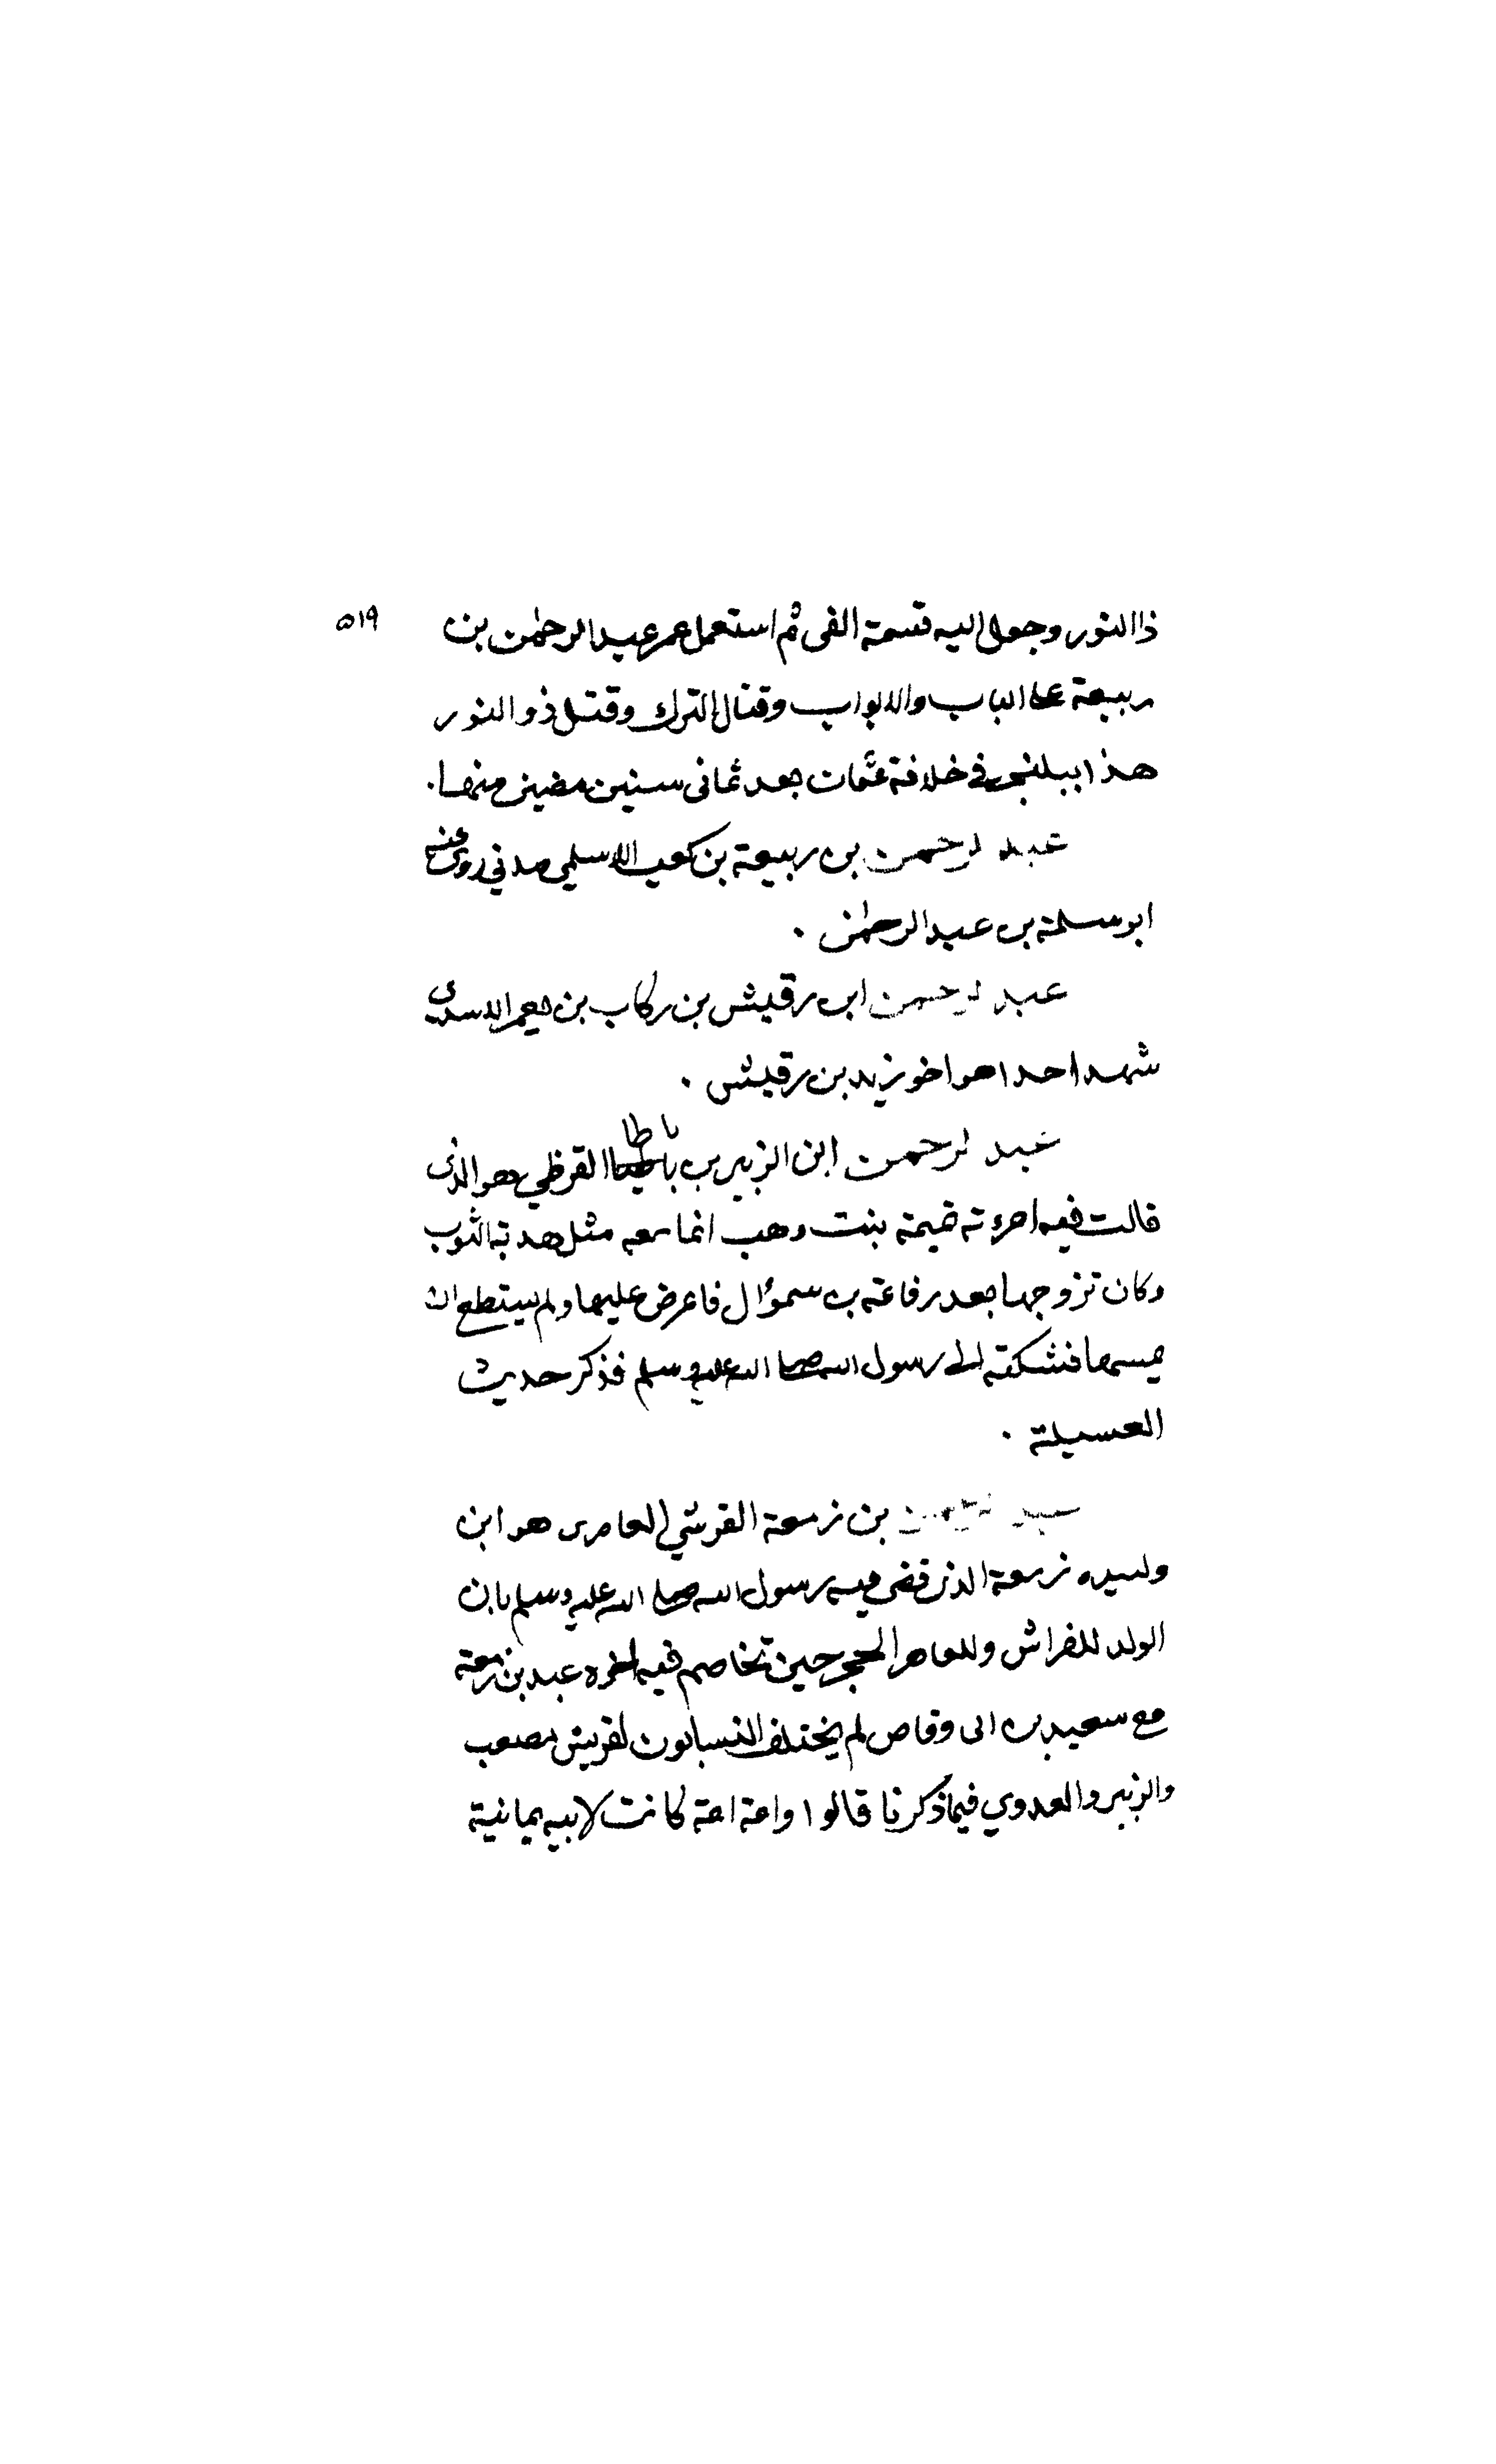 ذا النور وجعل اليه قسمة الفى ثم استعمل عمر عبد الرحمن بن ٥١٩
ربيعة على الباب والابواب وقتال الترك وقتل ذو النور
هذا ببلنجر في خلافة عثمان بعد ثمانى سنين مضين منها.
عبد الرحمن بن ربيعة بن كعب الاسلمي مدني روى عنه
ابو سلمة بن عبد الرحمن .
عبد الرحمن ابن رقيش بن ركاب بن يعمر الاسدى
شهد احدا هو اخو زيد بن رقيش .
عبد الرحمن ابن الزبير بن باطا القرظي هو الذى
قالت فيه امرءته تميمة بنت وهب انما معه مثل هدبة الثوب
وكان تزوجها بعد رفاعة بن سموؤال فاعرض عليها ولم يستطع ان
يمسها فشكته الى رسول الله صلى الله عليه وسلم فذكر حديث
العسيلة .
عبد الرحمن بن زمعة القرشي العامرى هو ابن
وليده زمعة الذى قضى فيه رسول الله صلى الله عليه وسلم بان
الولد للفراش وللعاهر الحجر حين تخاصم فيه اخوه عبد بن زمعة
مع سعيد بن ابى وقاص لم يختلف النسابون لقريش مصعب
والزبير والعدوي فيما ذكرنا قالوا وامة امة كانت لابيه يمانية